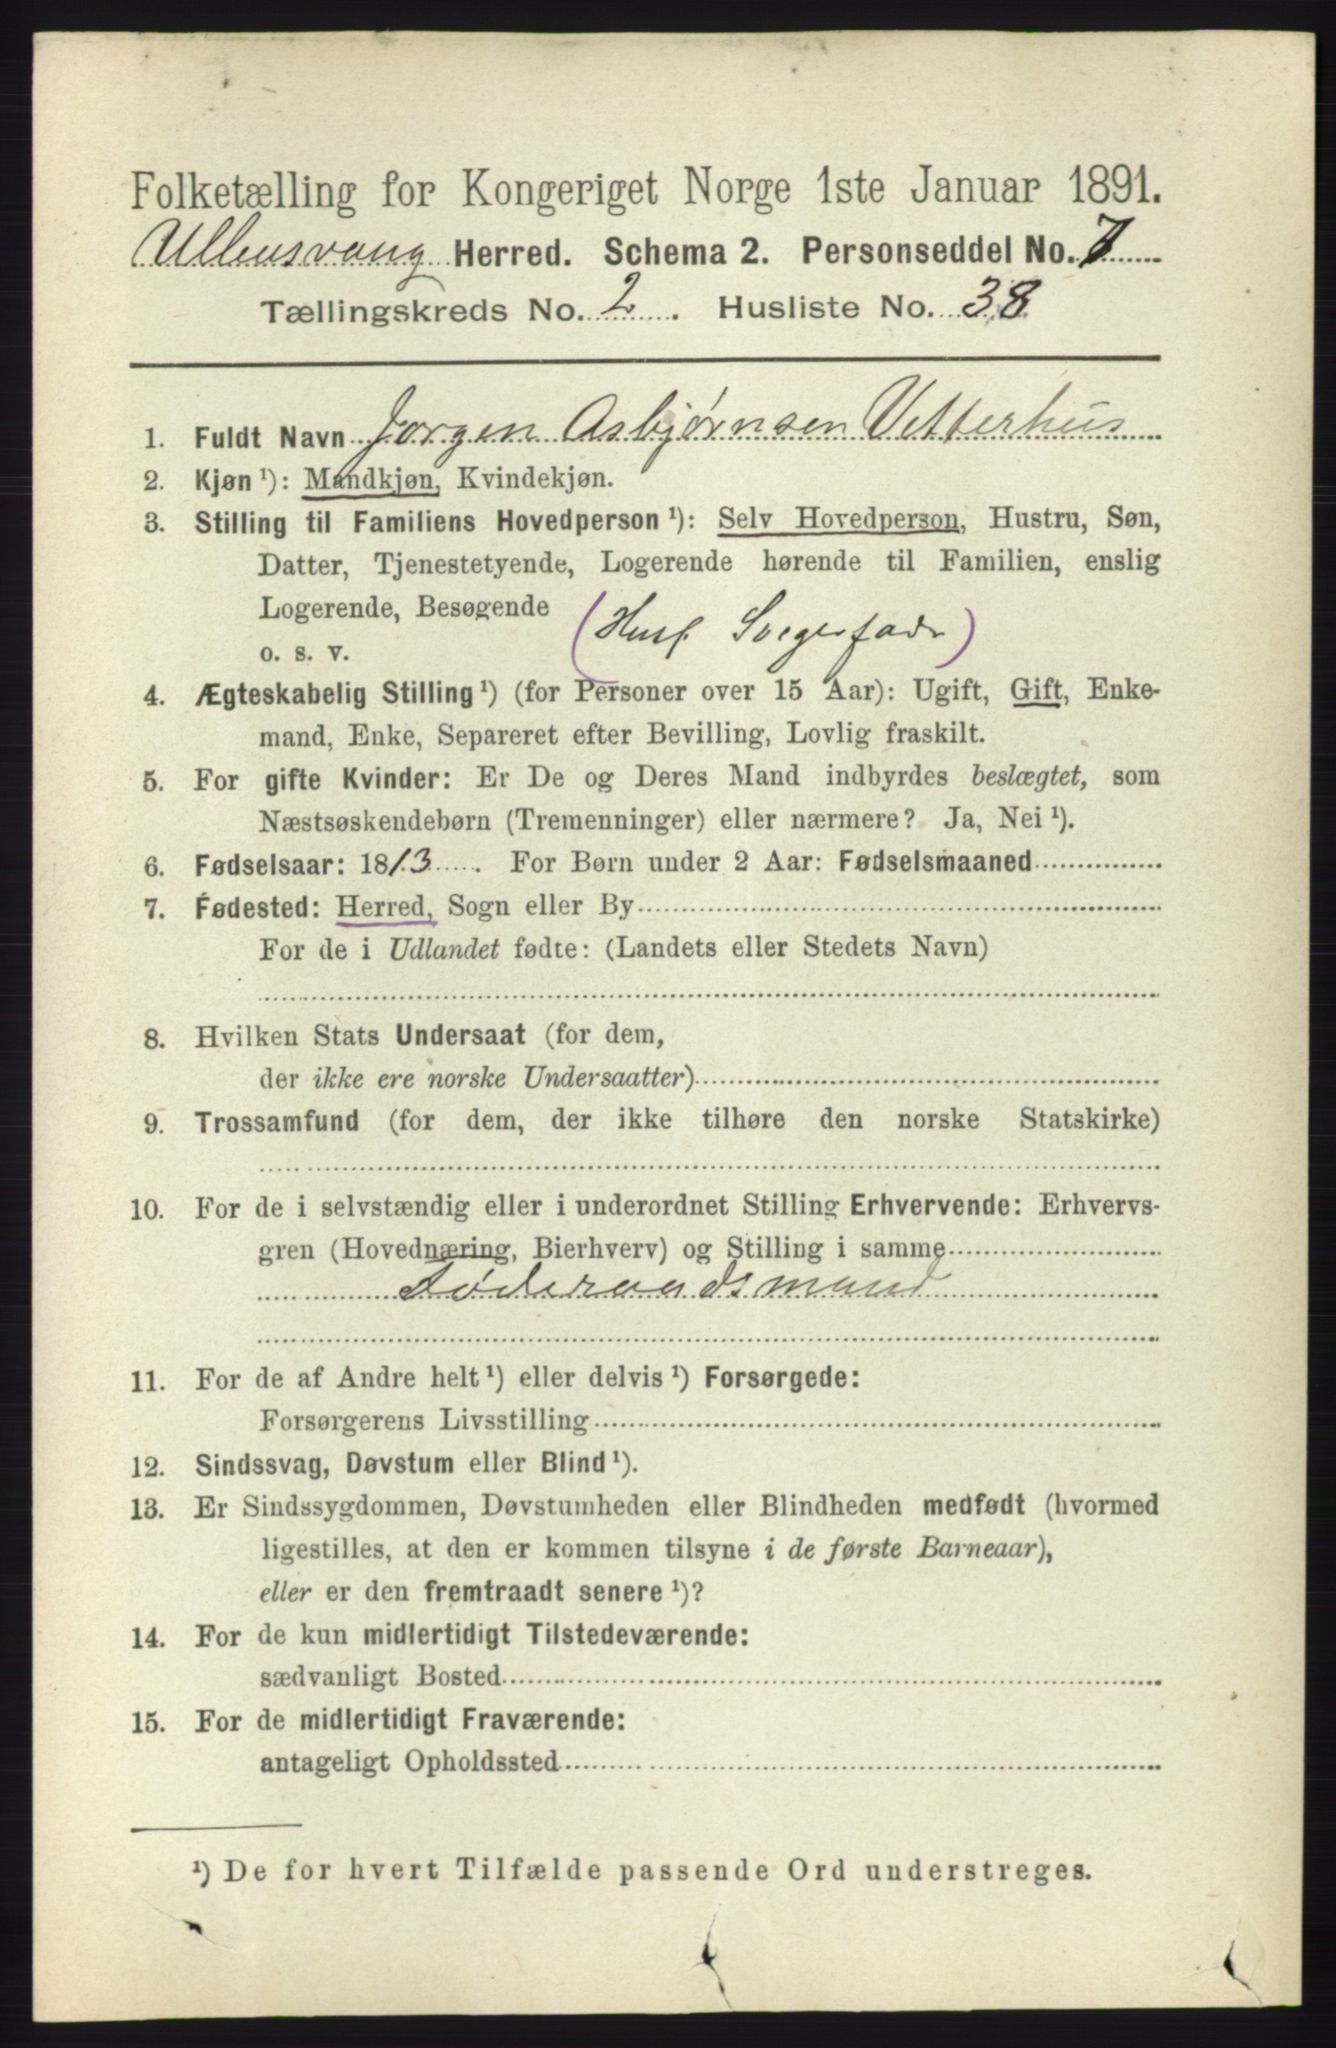 Folketælling for Kongeriget Norge 1ste Januar 1891.
Ullensvang Herred. Schema 2. Personseddel No. 7
Tællingskreds No. 2. Husliste No. 38
1. Fuldt Navn Jørgen Asbjørnsen Vetterhus
2. Kjøn ¹): Mandkjøn, Kvindekjøn.
3. Stilling til Familiens Hovedperson ¹): Selv Hovedperson, Hustru, Søn,
Datter, Tjenestetyende, Logerende hørende til Familien, enslig
Logerende, Besøgende
(Husf. Svigerfader)
o. s. v.
4. Ægteskabelig Stilling ¹) (for Personer over 15 Aar): Ugift, Gift, Enke-
mand, Enke, Separeret efter Bevilling, Lovlig fraskilt.
5. For gifte Kvinder: Er De og Deres Mand indbyrdes beslægtet, som
Næstsøskendebørn (Tremenninger) eller nærmere? Ja, Nei ¹).
6. Fødselsaar: 1813. For Børn under 2 Aar: Fødselsmaaned
7. Fødested: Herred, Sogn eller By
For de i Udlandet fødte: (Landets eller Stedets Navn)
8. Hvilken Stats Undersaat (for dem,
der ikke ere norske Undersaatter)
9. Trossamfund (for dem, der ikke tilhøre den norske Statskirke)
10. For de i selvstændig eller i underordnet Stilling Erhvervende: Erhvervs-
gren (Hovednæring, Bierhverv) og Stilling i samme
Føderaadsmand
11. For de af Andre helt ¹) eller delvis ¹) Forsørgede:
Forsørgerens Livsstilling
12. Sindssvag, Døvstum eller Blind ¹).
13. Er Sindssygdommen, Døvstumheden eller Blindheden medfødt (hvormed
ligestilles, at den er kommen tilsyne i de første Barneaar),
eller er den fremtraadt senere ¹)?
14. For de kun midlertidigt Tilstedeværende:
sædvanligt Bosted
15. For de midlertidigt Fraværende:
antageligt Opholdssted
¹) De for hvert Tilfælde passende Ord understreges.